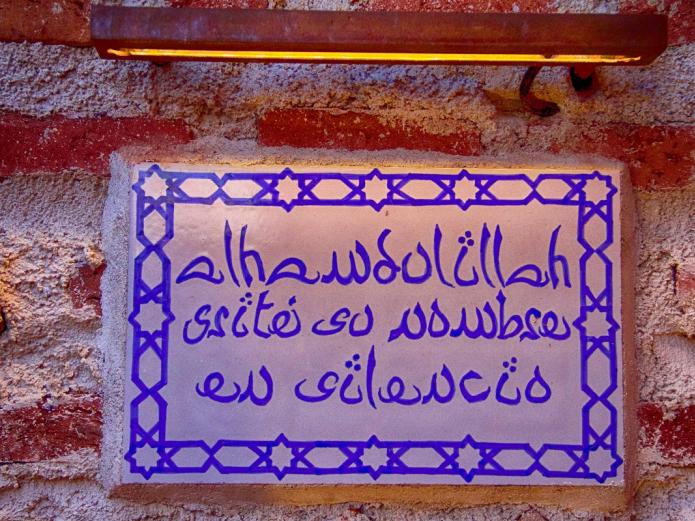 alhamdulillah
grité su nombre
en silencio